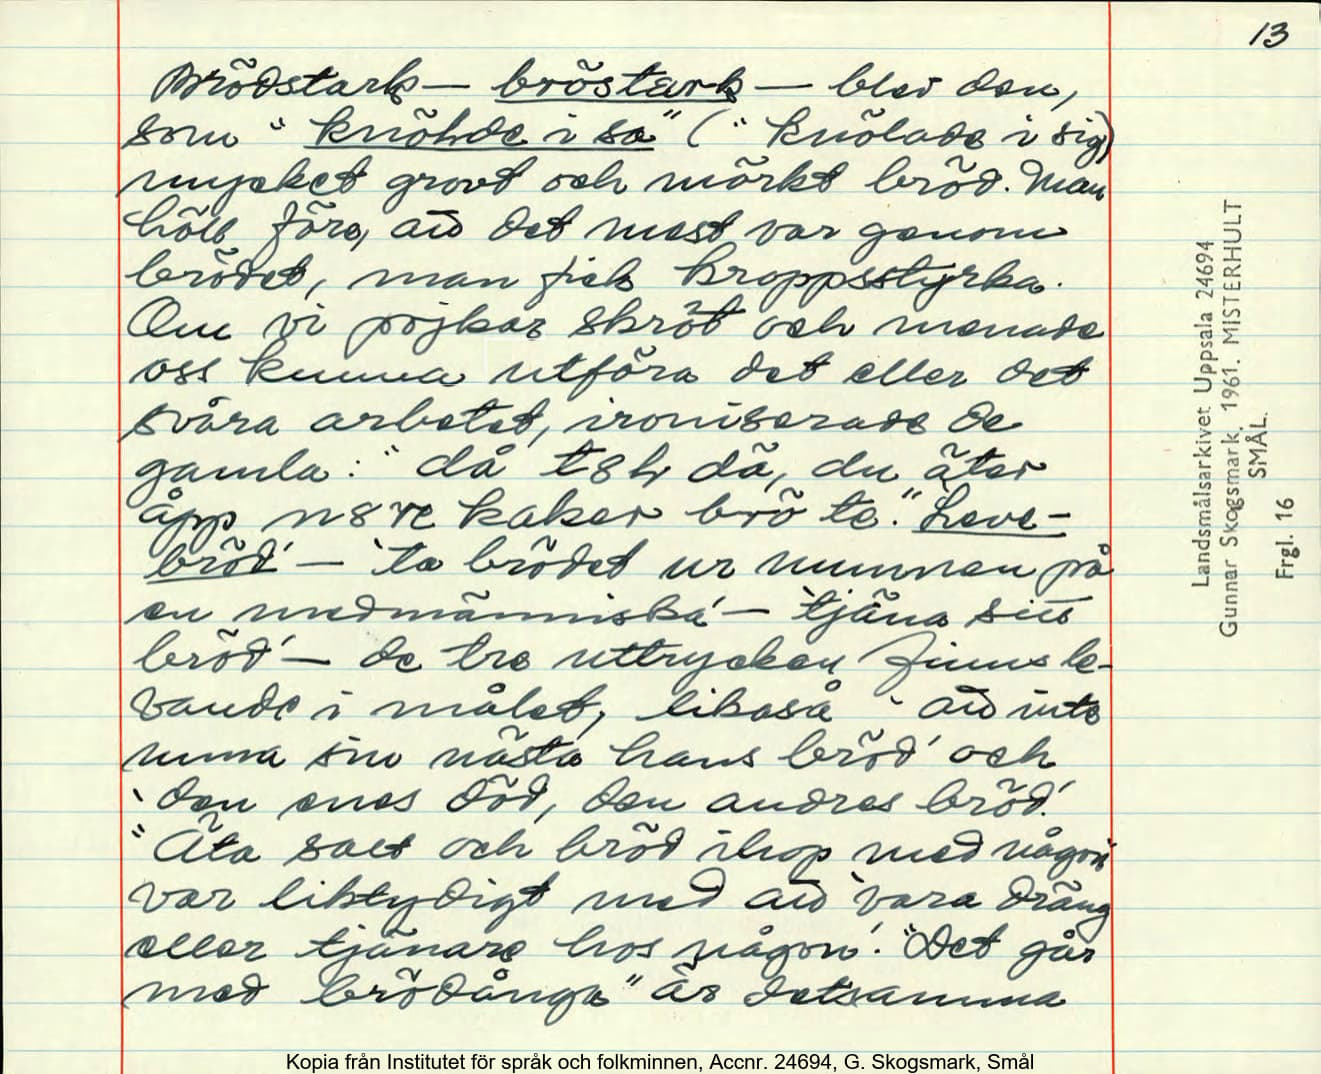 13
Brödstark — bröstark — blev den,
som "knöhde i sa" ("knölade i sig)
mycket grovt och mörkt bröd. Man
höll före, att det mest var genom
brödet, man fick kroppsstyrka.
Om vi pojkar skröt och menade
oss kunna utföra det eller det
svåra arbetet, ironiserade de
gamla: "då
då, du äter
åpp
kaker brö te." Leve-
bröd' — 'ta brödet ur munnen på
en medmänniska' — 'tjäna sitt
bröd' — de tre uttrycken finns le-
vande i målet, likaså 'att inte
unna sin nästa hans bröd' och
'den enes död, den andres bröd'.
"Äta salt och bröd ihop med någon"
var liktydigt med att 'vara dräng
eller tjänare hos någon'. "Det går
med brödånga" är detsamma
Landsmålsarkivet Uppsala 24694
Gunnar Skogsmark. 1961. MISTERHULT
SMÅL.
Frgl. 16
Kopia från Institutet för språk och folkminnen, Accnr. 24694, G. Skogsmark, Smål